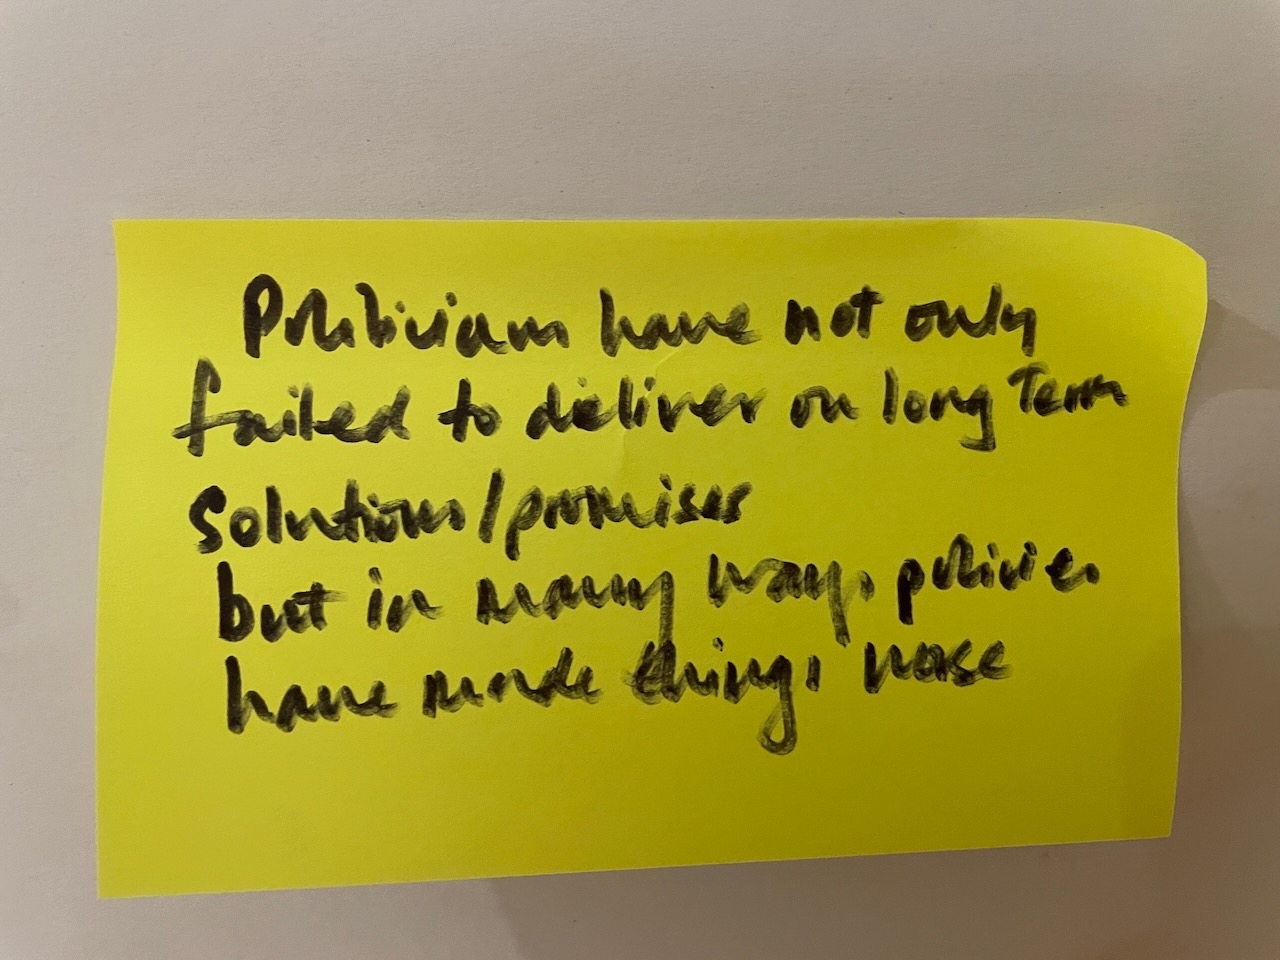 Politicians have not only
failed to deliver on long Term
solutions/promises
but in many ways policies
have made things worse